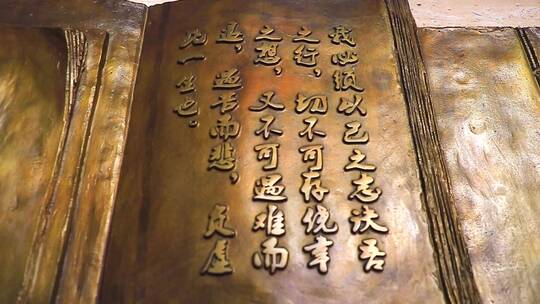 我必须以己之志决吾
之行，切不可存侥幸
之想，又不可遇难而
退，遇苦而悲，虚度
此一生也。